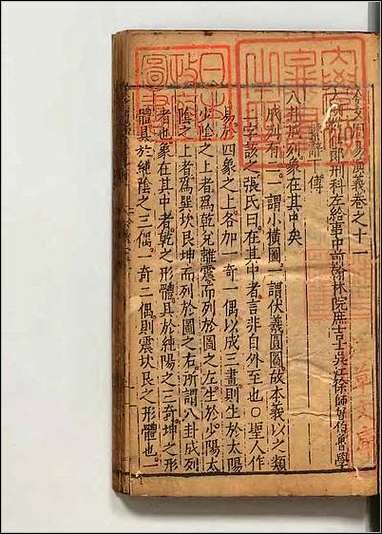 今文周易演義卷之十一
刑科左給事中前翰林院庶吉士吳江徐師曾伯魯學
繫辭下傳
八卦成列象在其中矣
成列有二一謂小橫圖一謂伏羲圓圖故本義以之類
二字該之張氏曰在其中者言非自外至也○聖人作
易於四象之上各加一奇一偶以成三畫則生於太陽
少陰之上者為乾兌離震而列於圖之左生於少陽太
陰之上者為巽坎艮坤而列於圖之右所謂八卦成列
者也象在其中者乾之形體具於純陽之三奇坤之形
體具於純陰之三偶一奇二偶則震坎艮之形體也一
日本
政府
圖書